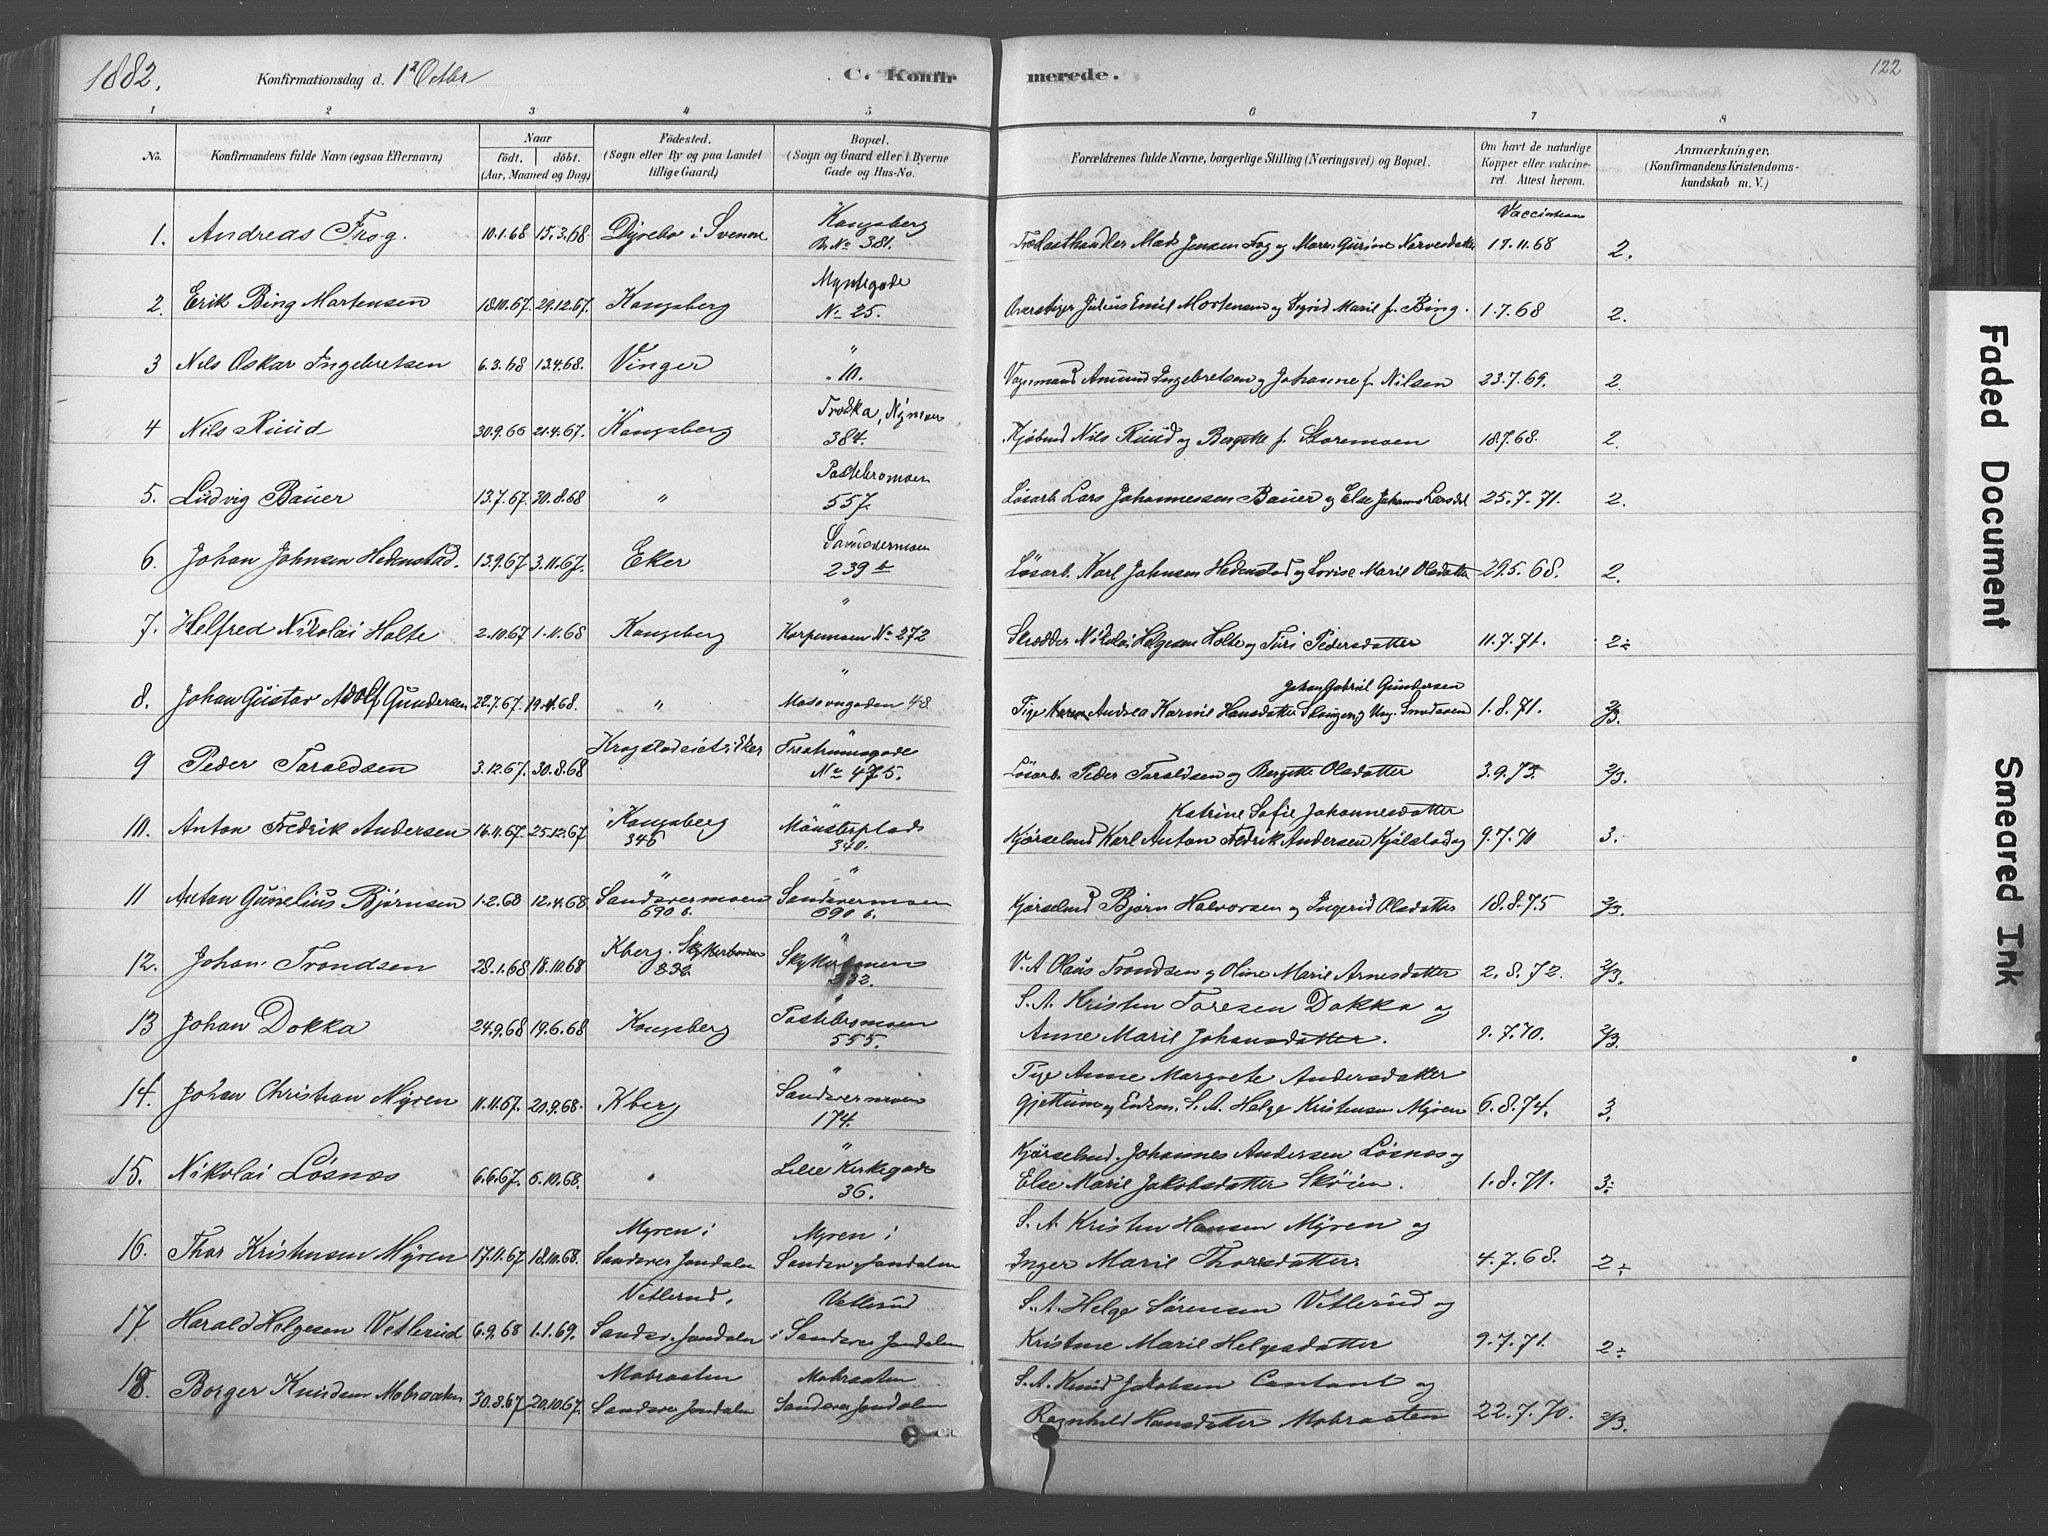 1882. Konfirmationsdag d. 1ste Octbr C. Konfirmerede. 122
1 2 3 4 5 6 7 8
No. Konfirmandens fulde Navn (ogsaa Efternavn) Naar født. døbt. (Aar, Maaned og Dag) Fødested. (Sogn eller By og paa Landet tillige Gaard.) Bopæl. (Sogn og Gaard eller i Byerne Gade og Hus-No. Forældrenes fulde Navne, borgerlige Stilling (Næringsvei) og Bopæl. Om havt de naturlige Kopper eller vakcineret. Attest herom. Anmærkninger, (Konfirmandens Kristendomskundskab m. V.)
Kongsberg Vaccination
1. Andreas Frog. 10.1.68 15.3.68 Dyrebo i Svenne No 381. Mads Jensen Fog og Maren Gurine Narvesdatter 17.11.68 2.
Myntegade
2. Erik Bing Martensen 18.10.67. 29.12.67. Kongsberg No 25. Overstiger Julius Emil Mortensen og Sigrid Marie f. Bing. 1.7.68 2.
"
3 Nils Oskar Ingebretsen 6.3.68 13.4.68. Vinger " 10. Vognmand Amund Ingebretsen og Johanne f. Nilsen 23.7.69. 2.
Nymoen
4 Nils Ruud 30.9.66 21.4.67. Kongsberg 384. Nils Ruud og Bergitte f. Storemoen 18.7.68. 2.
Pastebromoen
5. Ludvig Bauer 13.7.67. 30.8.68 " 557. Løsarb. Lars Johannessen Bauer og Else Johanne Larsdt 25.7.71. 2.
Sandsvermoen
6. Johan Johnsen Hedenstad. 13.9.67. 3.11.67. Eker 239 b Løsarb. Karl Johnsen Hedenstad og Lovise Marie Olsdatter 29.5.68. 2.
"
7. Helfred Nikolai Holte 2.10.67 1.11.68 Kongsberg Korpemoen No 272 Skrædder Nikolai Helgesen Holte og Turi Pedersdatter 11.7.71. 2÷
" Johan Gabriel Gundersen
8. Johan Gustav Adolf Gundersen 22.7.67. 19.4.68. " 48 Pige Karen Andrea Karine Hansdatter 1.8.71. 2/3.
9 Peder Taraldsen 3.12.67. 30.8.68 No 475. Løsarb. Peder Taraldsen og Bergitte Olsdatter 3.9.75. 2/3.
Kongsberg Mønsterplads Katrine Sofie Johannesdatter
10. Anton Fredrik Andersen 16.11.67. 25.12.67 346 340. Kjørselmd Karl Anton Fredrik Andersen Kjølstad og 9.7.70 3.
" "
11 Anton Gunelius Bjørnsen 1.2.68 12.4.68 Sandsvermoen 690 b. Sandsvermoen 690 b. Kjørselmd Bjørn Halvorsen og Ingerid Olsdatter 18.8.75 2/3.
Kberg. "
12. Johan Trondsen 28.1.68 18.10.68 332. V.A. Olaus Trondsen og Oline Marie Arnesdatter 2.8.72. 2/3.
Pastebromoen S.A. Kristen Toresen Dokka og
13 Johan Dokka 24.9.68 19.6.68 Kongsberg 555. Anne Marie Johansdatter. 9.7.70. 2/3.
" Pige Anne Margrete Andersdatter
14. Johan Christian Myren 11.11.67. 20.9.68. Kberg Sandsvermoen 174. Gjettum og Enkem. S.A. Helge Kristensen Myren 6.8.74. 3.
" Kjørselmd. Johannes Andersen Løsnæs og
15. Nikolai Løsnæs 6.6.67. 6.10.68. " Lille Kirkegade 36. Else Marie Jakobsdatter Skøien. 1.8.71. 3÷
Myren i Myren i S.A. Kristen Hansen Myren og
16. Thor Kristensen Myren 17.11.67 18.10.68. Sandsver Jondalen Sandsv. Jondalen Inger Marie Thorsdatter. 4.7.68. 2÷
Vetlerud. Vetlerud S.A. Helge Sørensen Vetlerud og
17 Harald Helgesen Vetlerud 6.9.68 1.1.69. Sandsv. Jondalen i Sandsver Jondalen Kristine Marie Helgesdatter 9.7.71. 2÷
Mobraaten Mobraaten S.A. Knud Jakobsen og
18. Borger Knudsen Mobraaten 30.8.67 20.10.67. Sandsver Jondalen Sandsver Jondalen Ragnhild Hansdatter Mobraaten 22.7.70. 2/3.
Faded Document
Smeared Ink